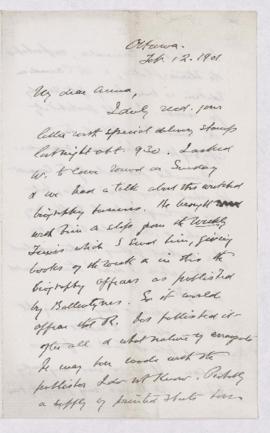 Ottawa.
Feb. 12. 1901
My dear Anna,
I duly recd. your
letter with special delivery stamps
last night abt. 930. I asked
W. to come round on Sunday
& we had a talk about this wretched
biography business. He brought
with him a slip from the Weekly
Times which I send him, giving
books of the week & in this the
biography appears as published
by Ballantynes. So it would
appear that R. has published it
after all & what nature of arrangmt
he may have made with the
publisher I do not know. Probably
a supply of printed sheets